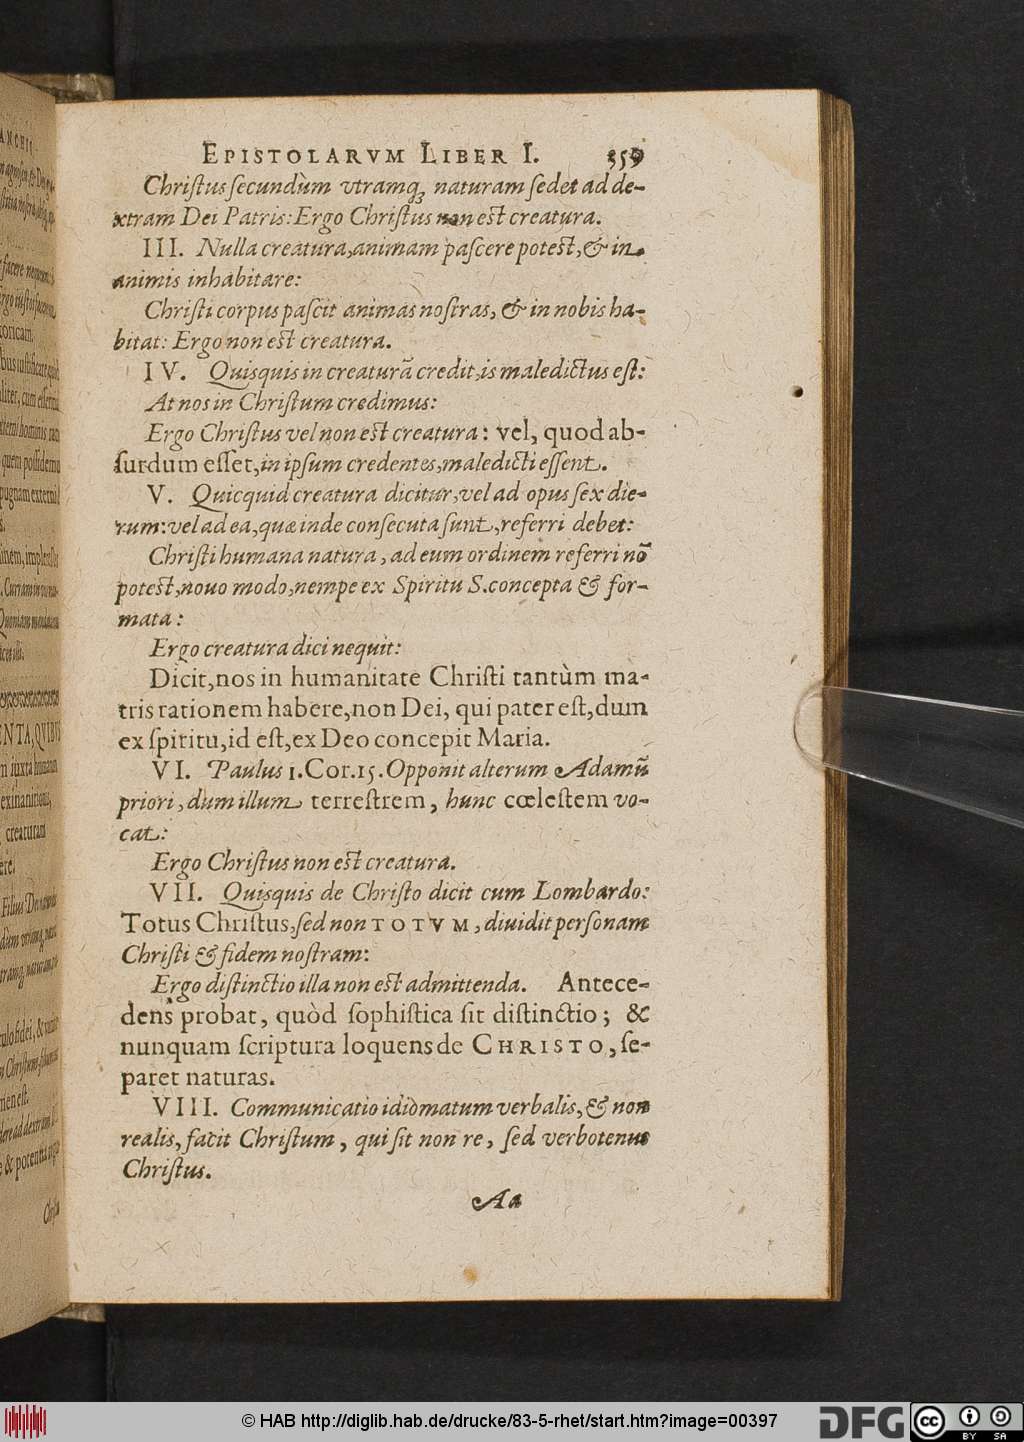 EPISTOLARVM LIBER I. 359
Christus secundùm vtramq́ue naturam sedet ad de-
xtram Dei Patris: Ergo Christus non est creatura.
III. Nulla creatura, animam pascere potest, & in
animis inhabitare:
Christi corpus pascit animas nostras, & in nobis ha-
bitat: Ergo non est creatura.
IV. Quisquis in creaturã credit, is maledictus est:
At nos in Christum credimus:
Ergo Christus vel non est creatura: vel, quod ab-
surdum esset, in ipsum credentes, maledicti essent.
V. Quicquid creatura dicitur, vel ad opus sex die-
rum: vel ad ea, quæ inde consecuta sunt, referri debet:
Christi humana natura, ad eum ordinem referri nõ
potest, nouo modo, nempe ex Spiritu S. concepta & for-
mata:
Ergo creatura dici nequit:
Dicit, nos in humanitate Christi tantùm ma-
tris rationem habere, non Dei, qui pater est, dum
ex spiritu, id est, ex Deo concepit Maria.
VI. Paulus 1. Cor. 15. Opponit alterum Adamũ
priori, dum illum terrestrem, hunc cœlestem vo-
cat:
Ergo Christus non est creatura.
VII. Quisquis de Christo dicit cum Lombardo:
Totus Christus, sed non TOTVM, diuidit personam
Christi & fidem nostram:
Ergo distinctio illa non est admittenda. Antece-
dens probat, quòd sophistica sit distinctio; &
nunquam scriptura loquens de CHRISTO, se-
paret naturas.
VIII. Communicatio idiomatum verbalis, & non
realis, facit Christum, qui sit non re, sed verbotenus
Christus.
Aa
© HAB http://diglib.hab.de/drucke/83-5-rhet/start.htm?image=00397
DFG
cc BY SA